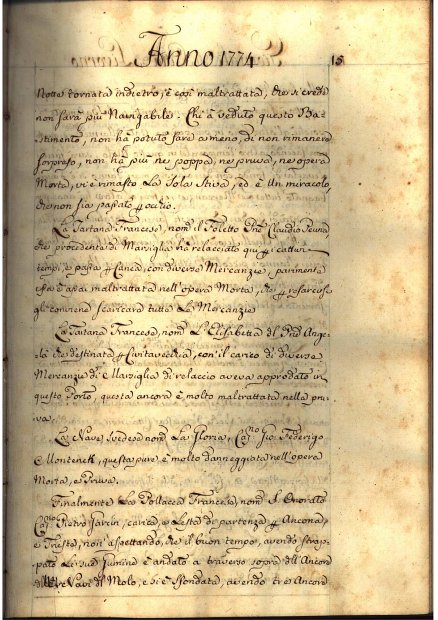 Anno 1774
15
Notte tornata indietro, è così maltrattata, che si crede
non sarà più Navigabile. Chi à veduto questo Ba-
stimento, non hà potuto fare a meno, di non rimanere
sorpreso, non hà più ne poppa, ne prua, ne opera
Morta, vi è rimasto La Sola Stiva, ed è Un miracolo,
che non sia passato p occhio.
La Tartana Francese, nom. Il Foletto Pne Claudio
che procedente di Marsiglia hà relasciato qui p cattivi
tempi, e passa p Canea, con diverse Mercanzie, parimente
essa è assai maltrattata nell'opera Morta, che p resarcirse
gli conviene scaricare tutte Le Mercanzie
La Tartana Francese, nom. L'Elisabetta di Pne Ange-
là che destinata p Civitavecchia, con il carico di diverse
Mercanzie di Marsiglia di relascio aveva approdato in
questo Porto, questa ancora è molto maltrattata nella pru-
va.
La Nave Svedese nom. La Gloria, Cap.no Gio. Federigo
Montenck, questa pure è molto danneggiata nell'opera
Morta, e Pruva.
Finalmente La Pollacca Francese, nom. S. Onorato
Cap.no Pietro Jarcin, carica, e Lesta di partenza p Ancona,
e Trieste, non aspettando, che il buon tempo, avendo strap-
pato Li suoi Gumine è andato a traverso sopra dll'Ancore
Navi di Molo, e si è Sfondata, avendo tre Ancore